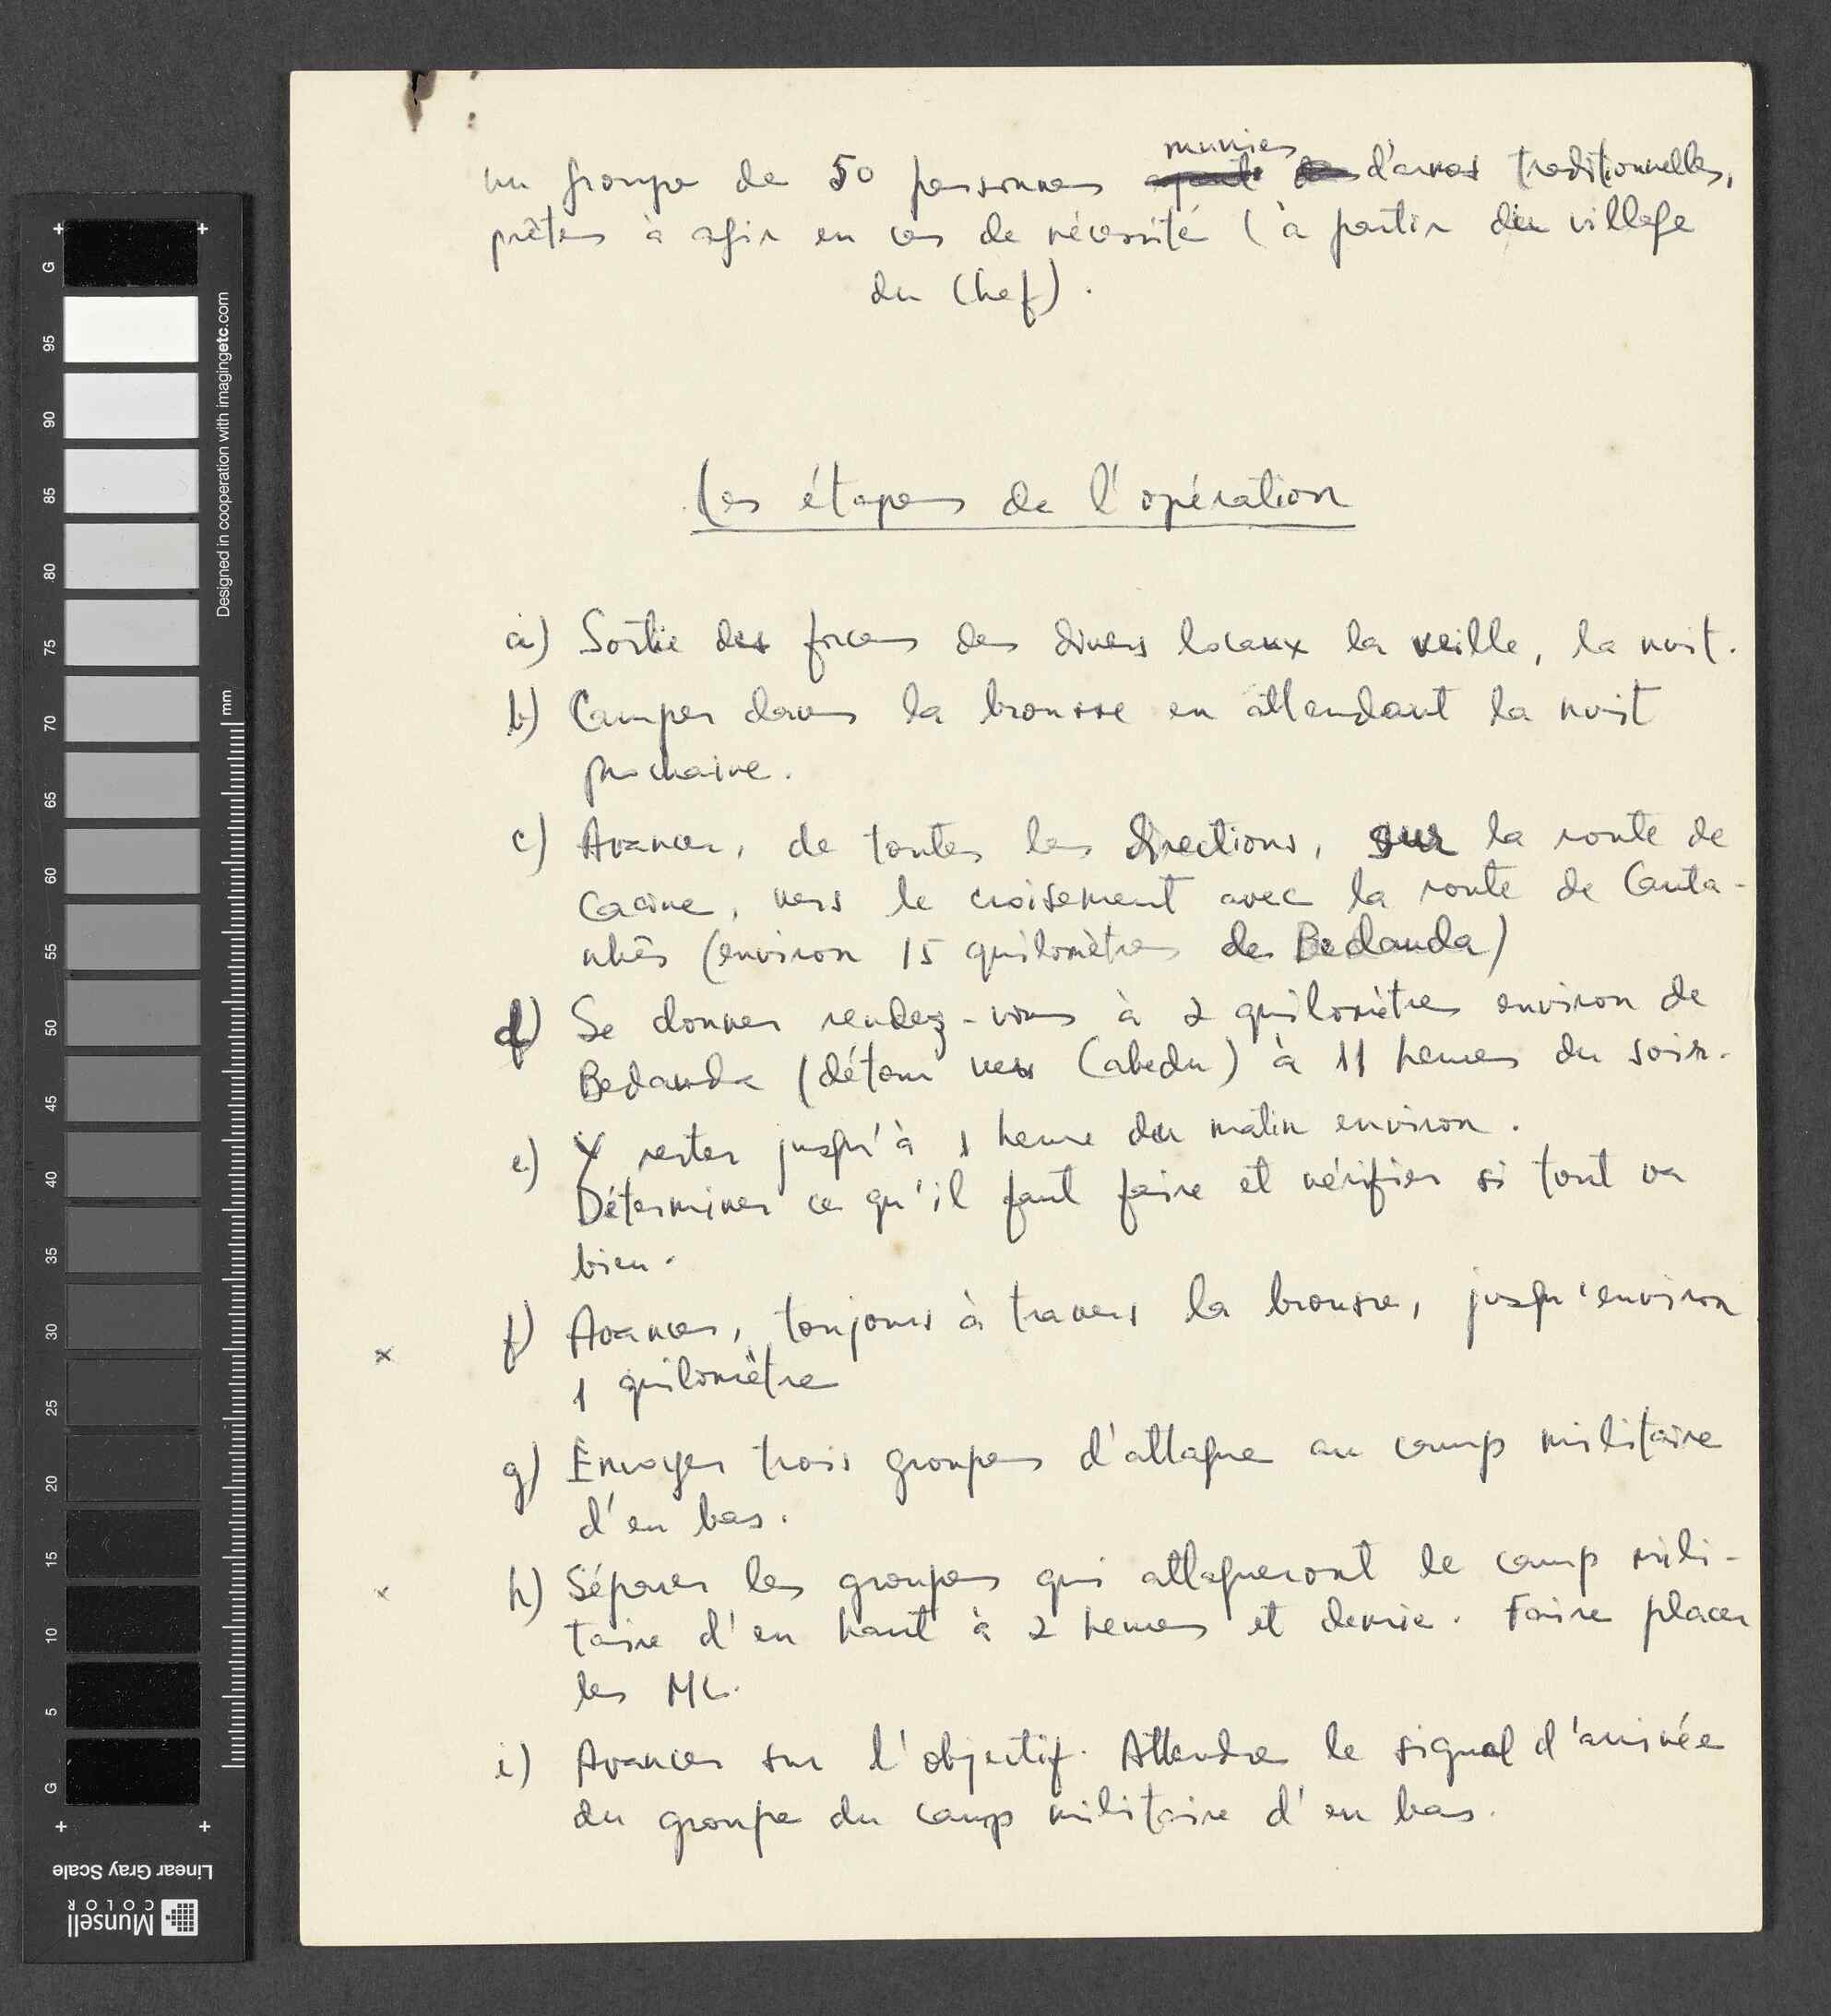 un groupe de 50 personnes munies d'armes traditionnelles,
prêtes à agir en cas de nécessité (à partir du village
du Chef).
Les étapes de l'opération
a) Sortie des forces des divers locaux la veille, la nuit.
b) Camper dans la brousse en attendant la nuit
prochaine.
c) Avancer, de toutes les directions, sur la route de
Cacine, vers le croisement avec la route de Canta-
nhês (environ 15 quilomètres de Bedanda)
d) Se donner rendez-vous à 2 quilomètres environ de
Bedanda (détour vers Cabedu) à 11 heures du soir.
e) Y rester jusqu'à 1 heure du matin environ.
Déterminer ce qu'il faut faire et vérifier si tout va
bien.
x f) Avancer, toujours à travers la brousse, jusqu'environ
1 quilomètre
g) Envoyer trois groupes d'attaque au camp militaire
d'en bas.
x h) Séparer les groupes qui attaqueront le camp mili-
taire d'en haut à 2 heures et demie. Faire placer
les ML.
i) Avancer sur l'objectif. Attendre le signal d'arrivée
du groupe du camp militaire d'en bas.
G
95
90
85
80
75
70
65
60
55
50
45
40
35
30
25
20
15
10
5
G
Designed in cooperation with imagingetc.com
mm
Linear Gray Scale
Munsell
COLOR